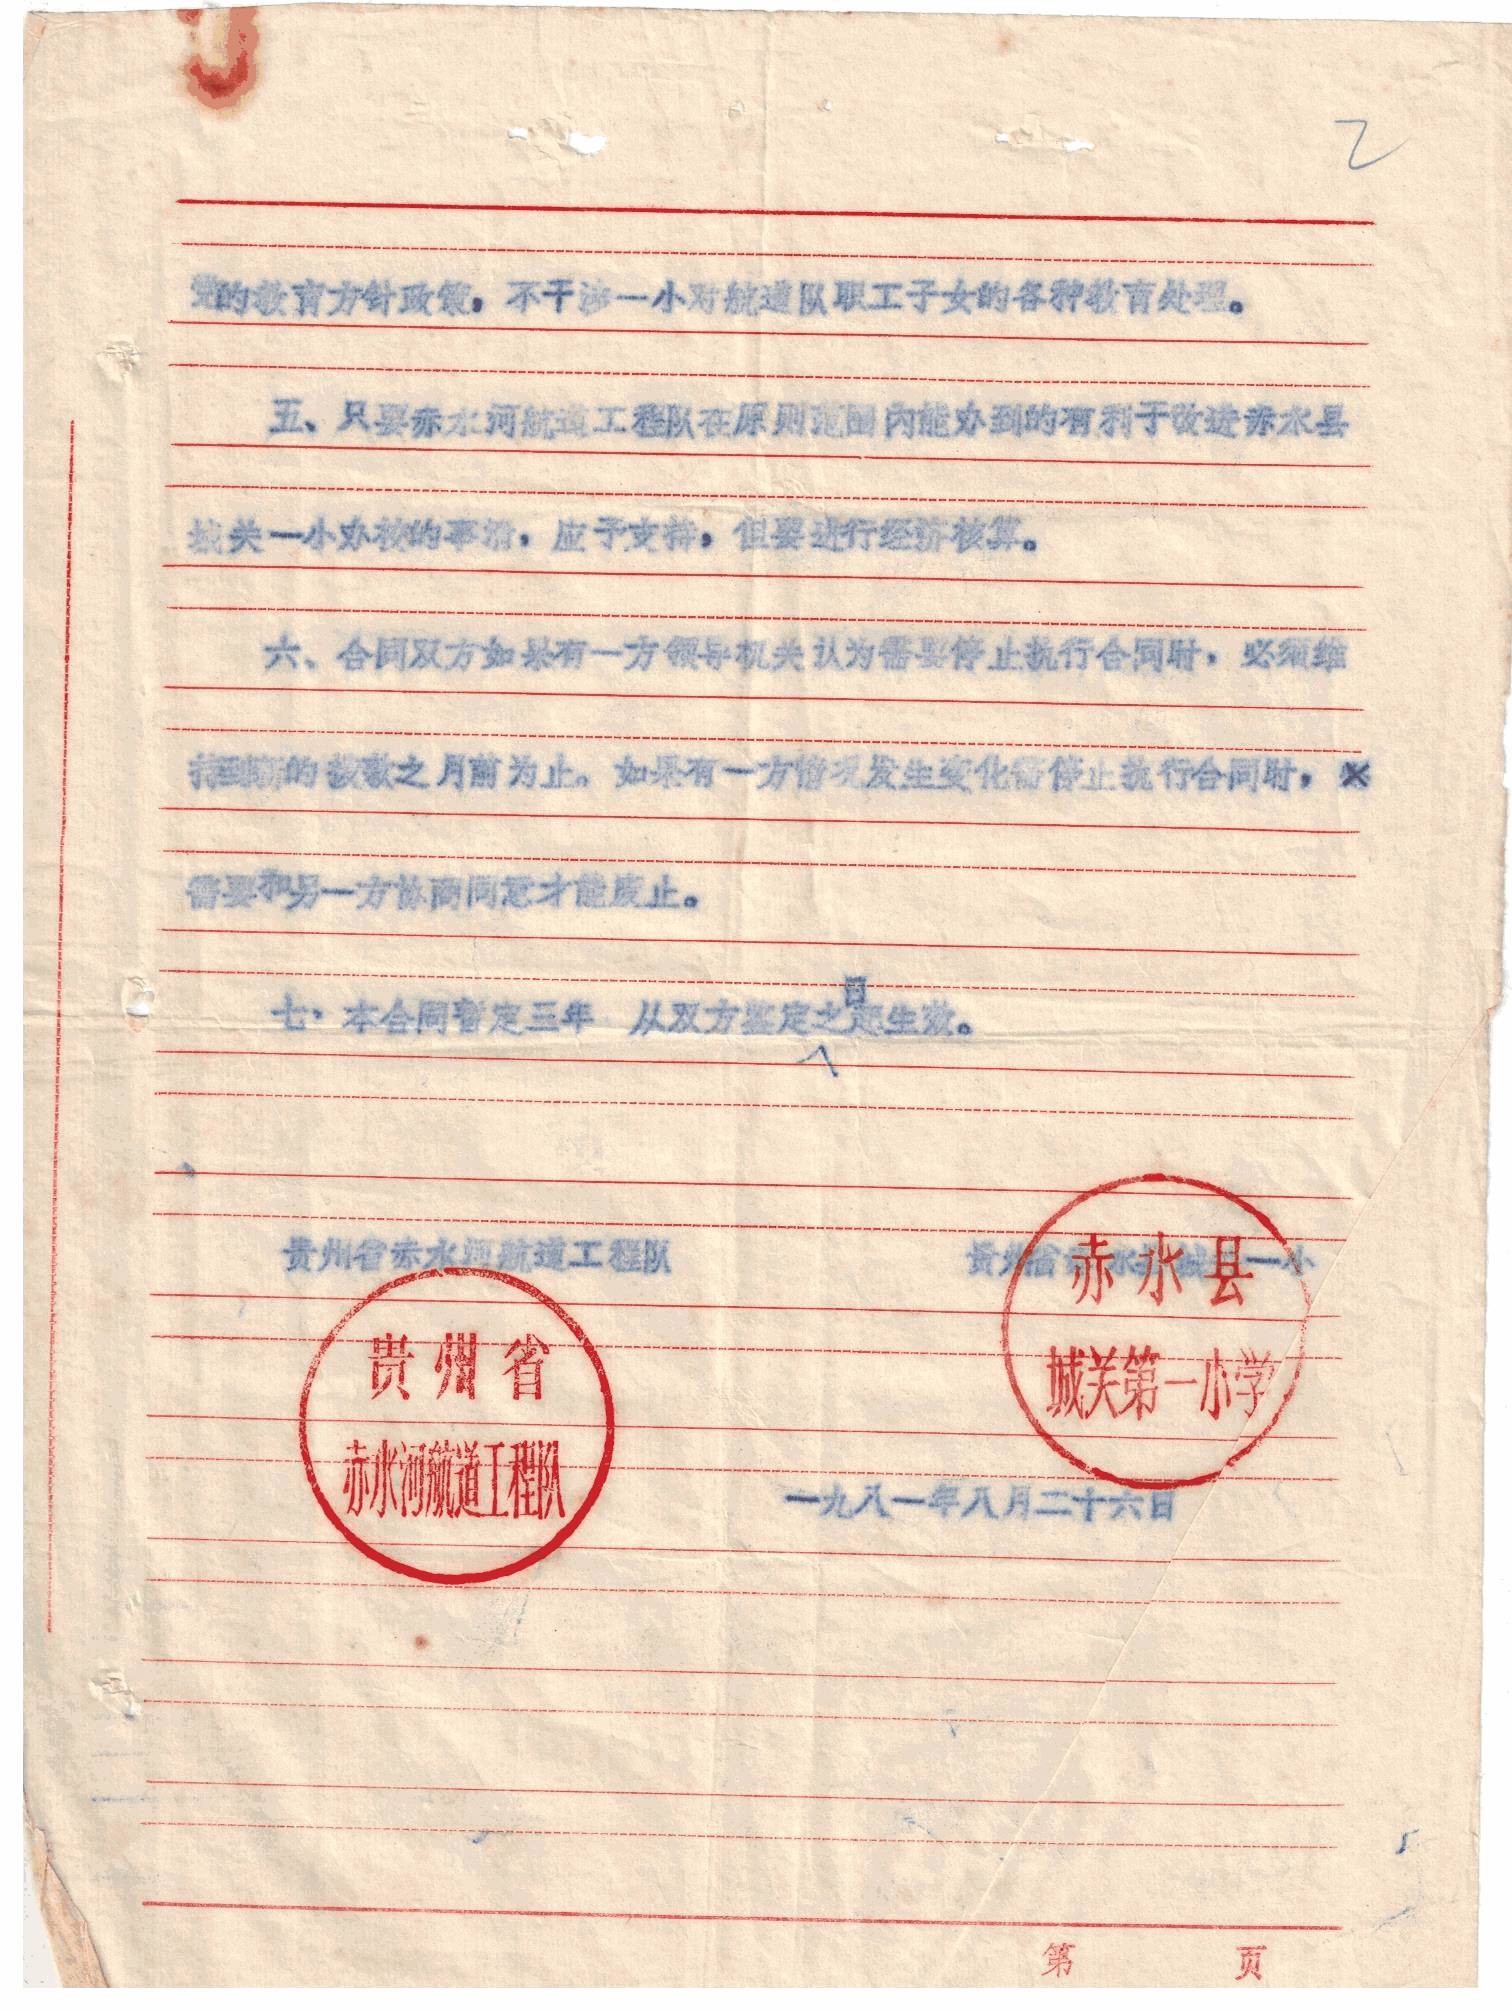 2
党的教育方针政策，不干涉一小对航道队职工子女的各种教育处理。
五、只要赤水河航道工程队在原则范围内能办到的有利于改进赤水县
城关一小办校的事情，应予支持，但要进行经济核算。
六、合同双方如果有一方领导机关认为需要停止执行合同时，必须维
持到新的拨款之月前为止。如果有一方情况发生变化需停止执行合同时，
需要和另一方协商同意才能废止。
日
七、本合同暂定三年 从双方鉴定之起生效。
贵州省赤水河航道工程队 贵州省赤水县城关一小
贵州省
赤水河航道工程队
赤水县
城关第一小学
一九八一年八月二十六日
第 页